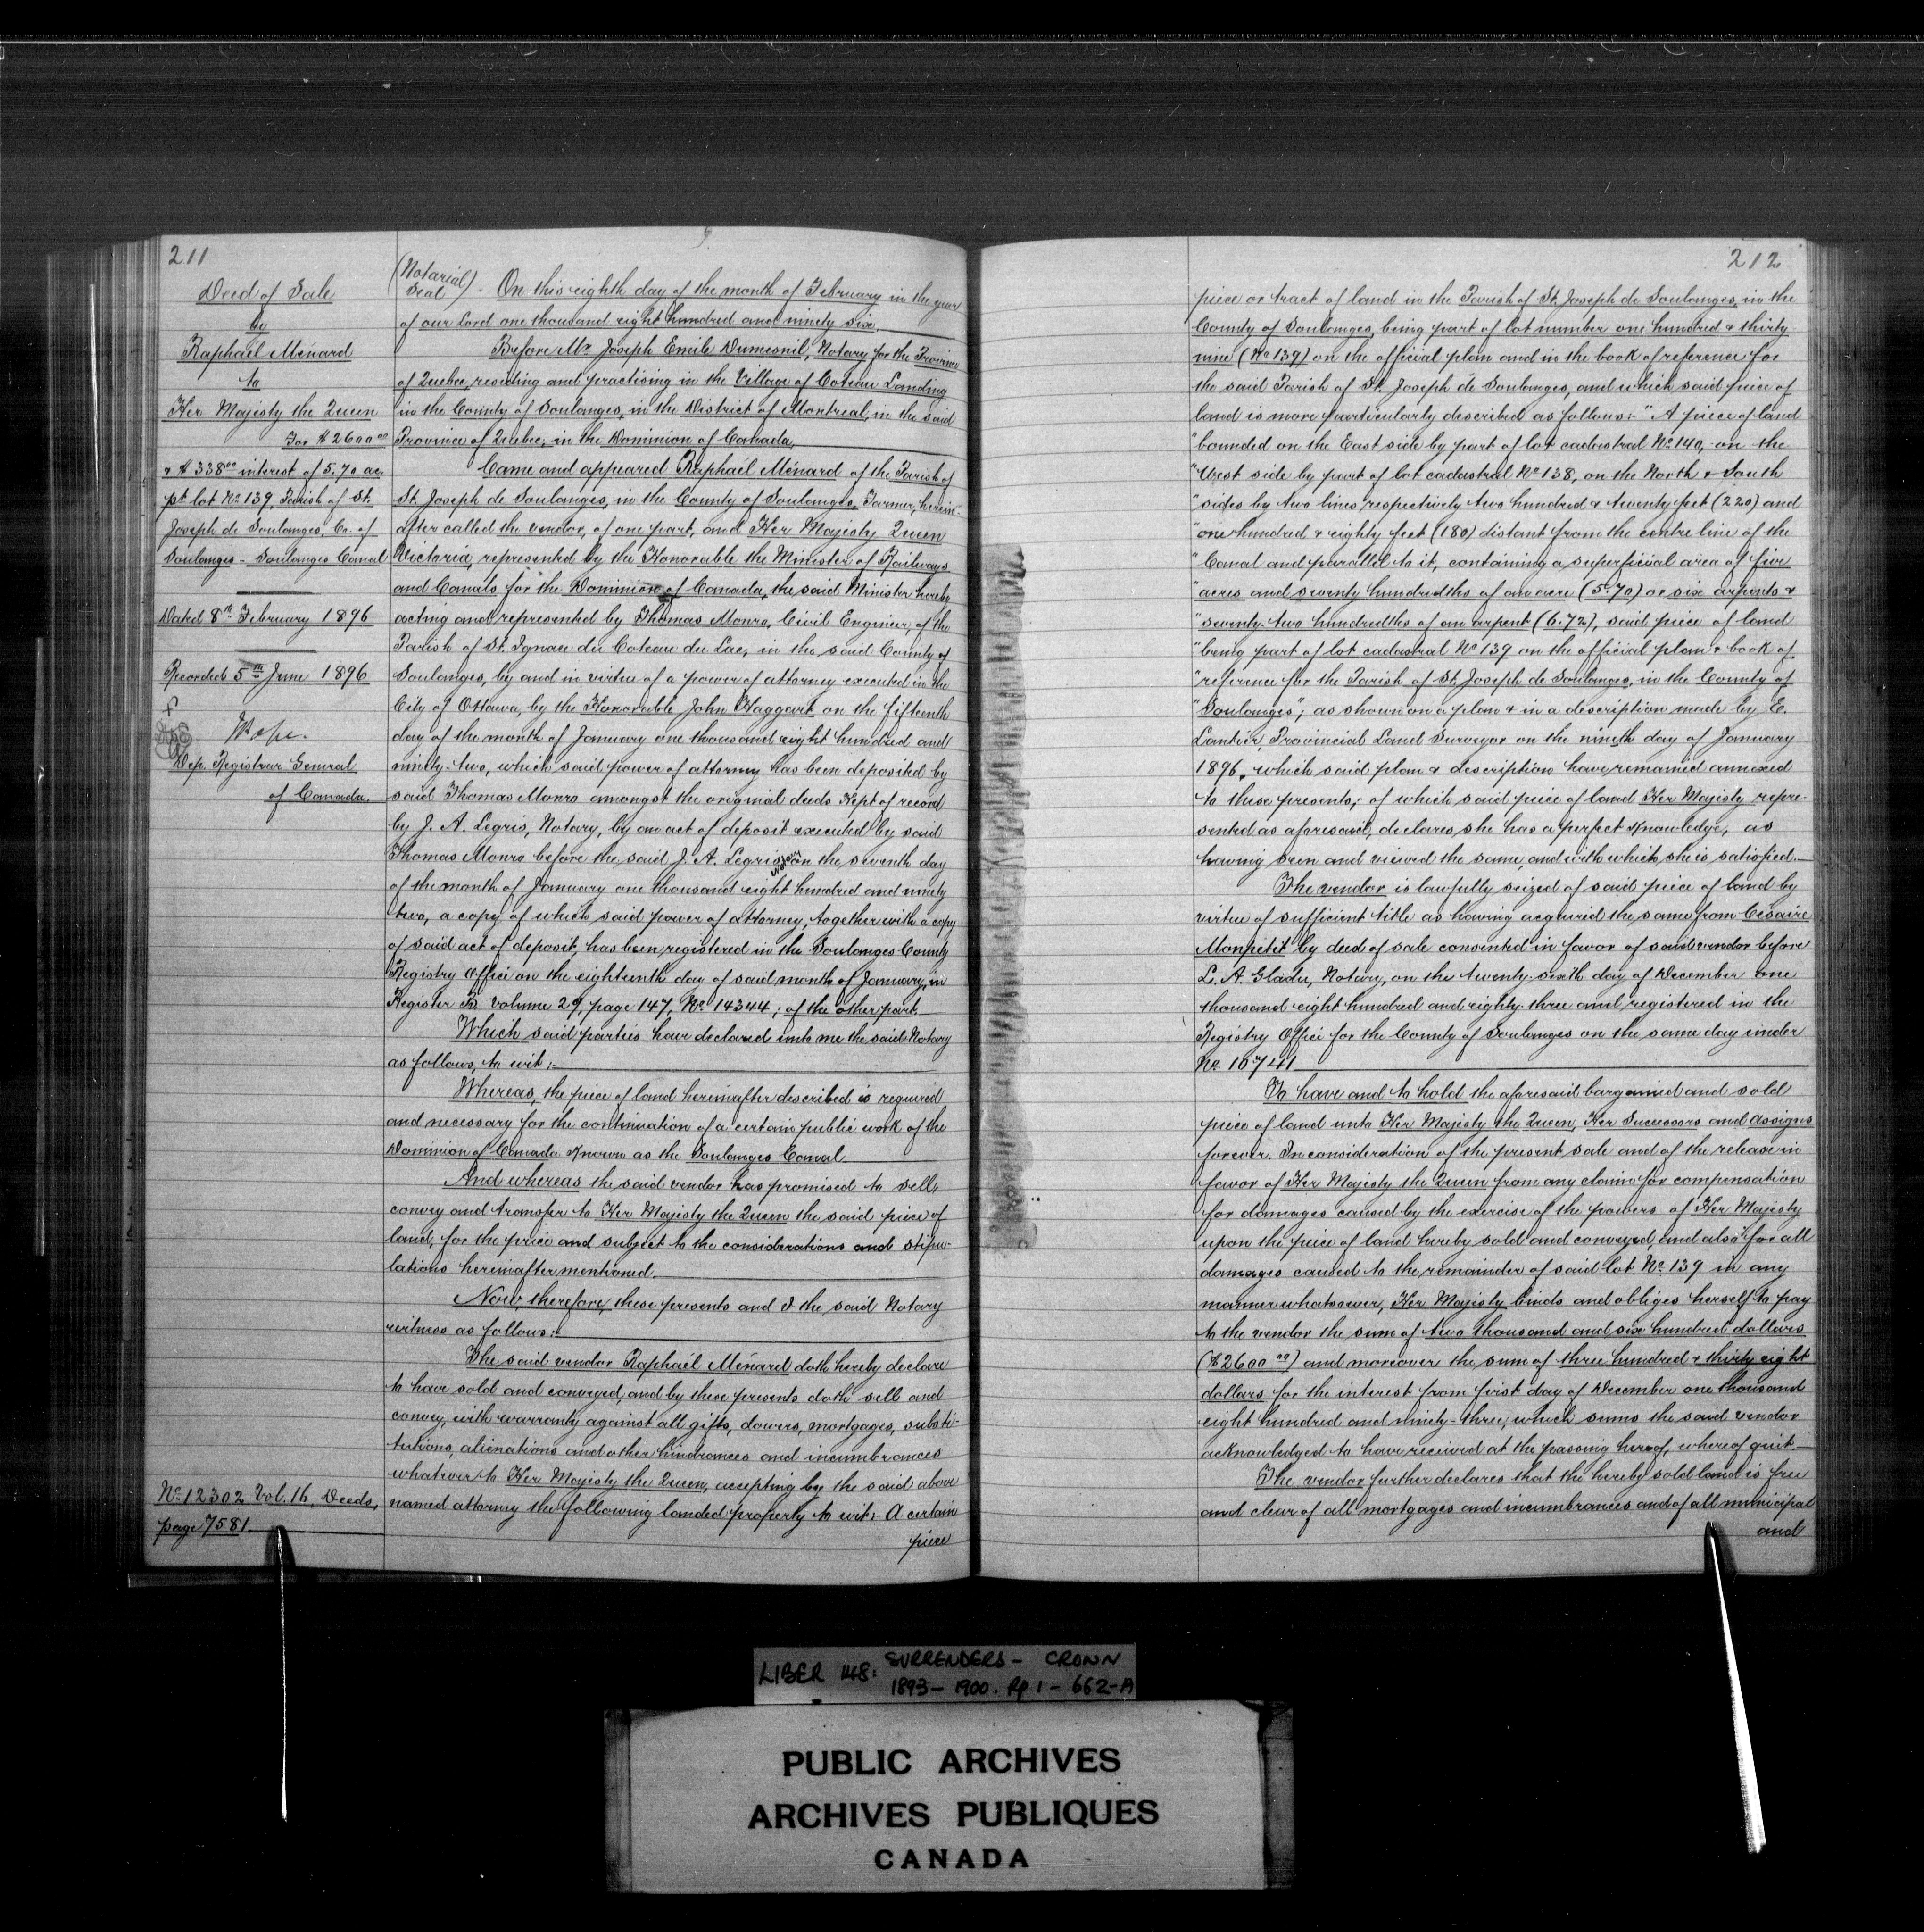 211
Deed of Sale
by
Raphaël Ménard
to
Her Majesty the Queen
For $2600 00
& $338 00 interest of 5.70 ac.
pt lot No 139, Parish of St.
Joseph de Soulanges, Co. of
Soulanges - Soulanges Canal
Dated 8th February 1896
Recorded 5th June 1896
Dep. Registrar General
of Canada.
No 12302 Vol. 16, Deeds,
page 7581.
(Notarial Seal) - On this eighth day of the month of February in the year
of our Lord one thousand eight hundred and ninety six,
Before Mr Joseph Emile Dumesnil, Notary for the Province
of Quebec, residing and practising in the Village of Coteau Landing
in the County of Soulanges, in the District of Montreal, in the said
Province of Quebec, in the Dominion of Canada,
Came and appeared Raphaël Ménard of the Parish of
St. Joseph de Soulanges, in the County of Soulanges, Farmer, herein-
after called the vendor, of one part, and Her Majesty Queen
Victoria, represented by the Honorable the Minister of Railways
and Canals, for the Dominion of Canada, the said Minister hereby
acting and represented by Thomas Monro, Civil Engineer, of the
Parish of St. Ignace du Coteau du Lac, in the said County of
Soulanges, by and in virtue of a power of attorney executed in the
City of Ottawa, by the Honorable John Haggart on the fifteenth
day of the month of January one thousand eight hundred and
ninety-two, which said power of attorney has been deposited by
said Thomas Monro amongst the original deeds kept of record
by J. A. Legris, Notary, by an act of deposit executed by said
Thomas Monro before the said J. A. Legris Notary on the seventh day
of the month of January one thousand eight hundred and ninety
two, a copy of which said power of attorney, together with a copy
of said act of deposit, has been registered in the Soulanges County
Registry Office on the eighteenth day of said month of January, in
Register B volume 29, page 147, No 14344; of the other part.
Which said parties have declared unto me the said Notary
as follows, to wit:-
Whereas, the piece of land hereinafter described is required
and necessary for the continuation of a certain public work of the
Dominion of Canada known as the Soulanges Canal.
And whereas the said vendor has promised to sell,
convey and transfer to Her Majesty the Queen the said piece of
land, for the price and subject to the considerations and stipu-
lations hereinafter mentioned.
Now therefore, these presents and I the said Notary
witness as follows:-
The said vendor Raphaël Ménard doth hereby declare
to have sold and conveyed, and by these presents doth sell and
convey, with warranty against all gifts, dowers, mortgages, substi-
tutions, alienations and other hindrances and incumbrances
whatever to Her Majesty the Queen, accepting by the said above
named attorney the following landed property to wit:- A certain
piece
212
piece or tract of land in the Parish of St. Joseph de Soulanges, in the
County of Soulanges, being part of lot number one hundred & thirty
nine (No 139) on the official plan and in the book of reference for
the said Parish of St. Joseph de Soulanges, and which said piece of
land is more particularly described as follows:- "A piece of land
"bounded on the East side by part of lot cadastral No 140, on the
"West side by part of lot cadastral No 138, on the North & South
"sides by two lines respectively two hundred & twenty feet (220) and
"one hundred & eighty feet (180) distant from the centre line of the
"Canal and parallel to it, containing a superficial area of five
"acres and seventy hundredths of an acre (5.70) or six arpents &
"seventy-two hundredths of an arpent (6.72), said piece of land
"being part of lot cadastral No 139 on the official plan & book of
"reference for the Parish of St Joseph de Soulanges, in the County of
"Soulanges"; as shown on a plan & in a description made by E.
Lantier, Provincial Land Surveyor on the ninth day of January
1896, which said plan & description have remained annexed
to these presents; of which said piece of land Her Majesty repre-
sented as aforesaid, declares she has a perfect knowledge, as
having seen and viewed the same, and with which she is satisfied.
The vendor is lawfully seized of said piece of land by
virtue of sufficient title as having acquired the same from Césaire
Monpetit by deed of sale consented in favor of said vendor before
L. A. Gladu, Notary, on the twenty-sixth day of December one
thousand eight hundred and eighty-three and registered in the
Registry Office for the County of Soulanges on the same day under
No 10741
To have and to hold the aforesaid bargained and sold
piece of land unto Her Majesty the Queen, Her Successors and Assigns
forever. In consideration of the present sale and of the release in
favor of Her Majesty the Queen from any claim for compensation
for damages caused by the exercise of the powers of Her Majesty
upon the piece of land hereby sold and conveyed, and also for all
damages caused to the remainder of said lot No 139 in any
manner whatsoever, Her Majesty binds and obliges herself to pay
to the vendor the sum of two thousand and six hundred dollars
($2600 00) and moreover the sum of three hundred & thirty eight
dollars for the interest from first day of December one thousand
eight hundred and ninety-three, which sums the said vendor
acknowledged to have received at the passing hereof, whereof quit
The vendor further declares that the hereby sold land is free
and clear of all mortgages and incumbrances and of all municipal
and
LIBER 148: SURRENDERS - CROWN
1893 - 1900. Pp 1 - 662-A
PUBLIC ARCHIVES
ARCHIVES PUBLIQUES
CANADA